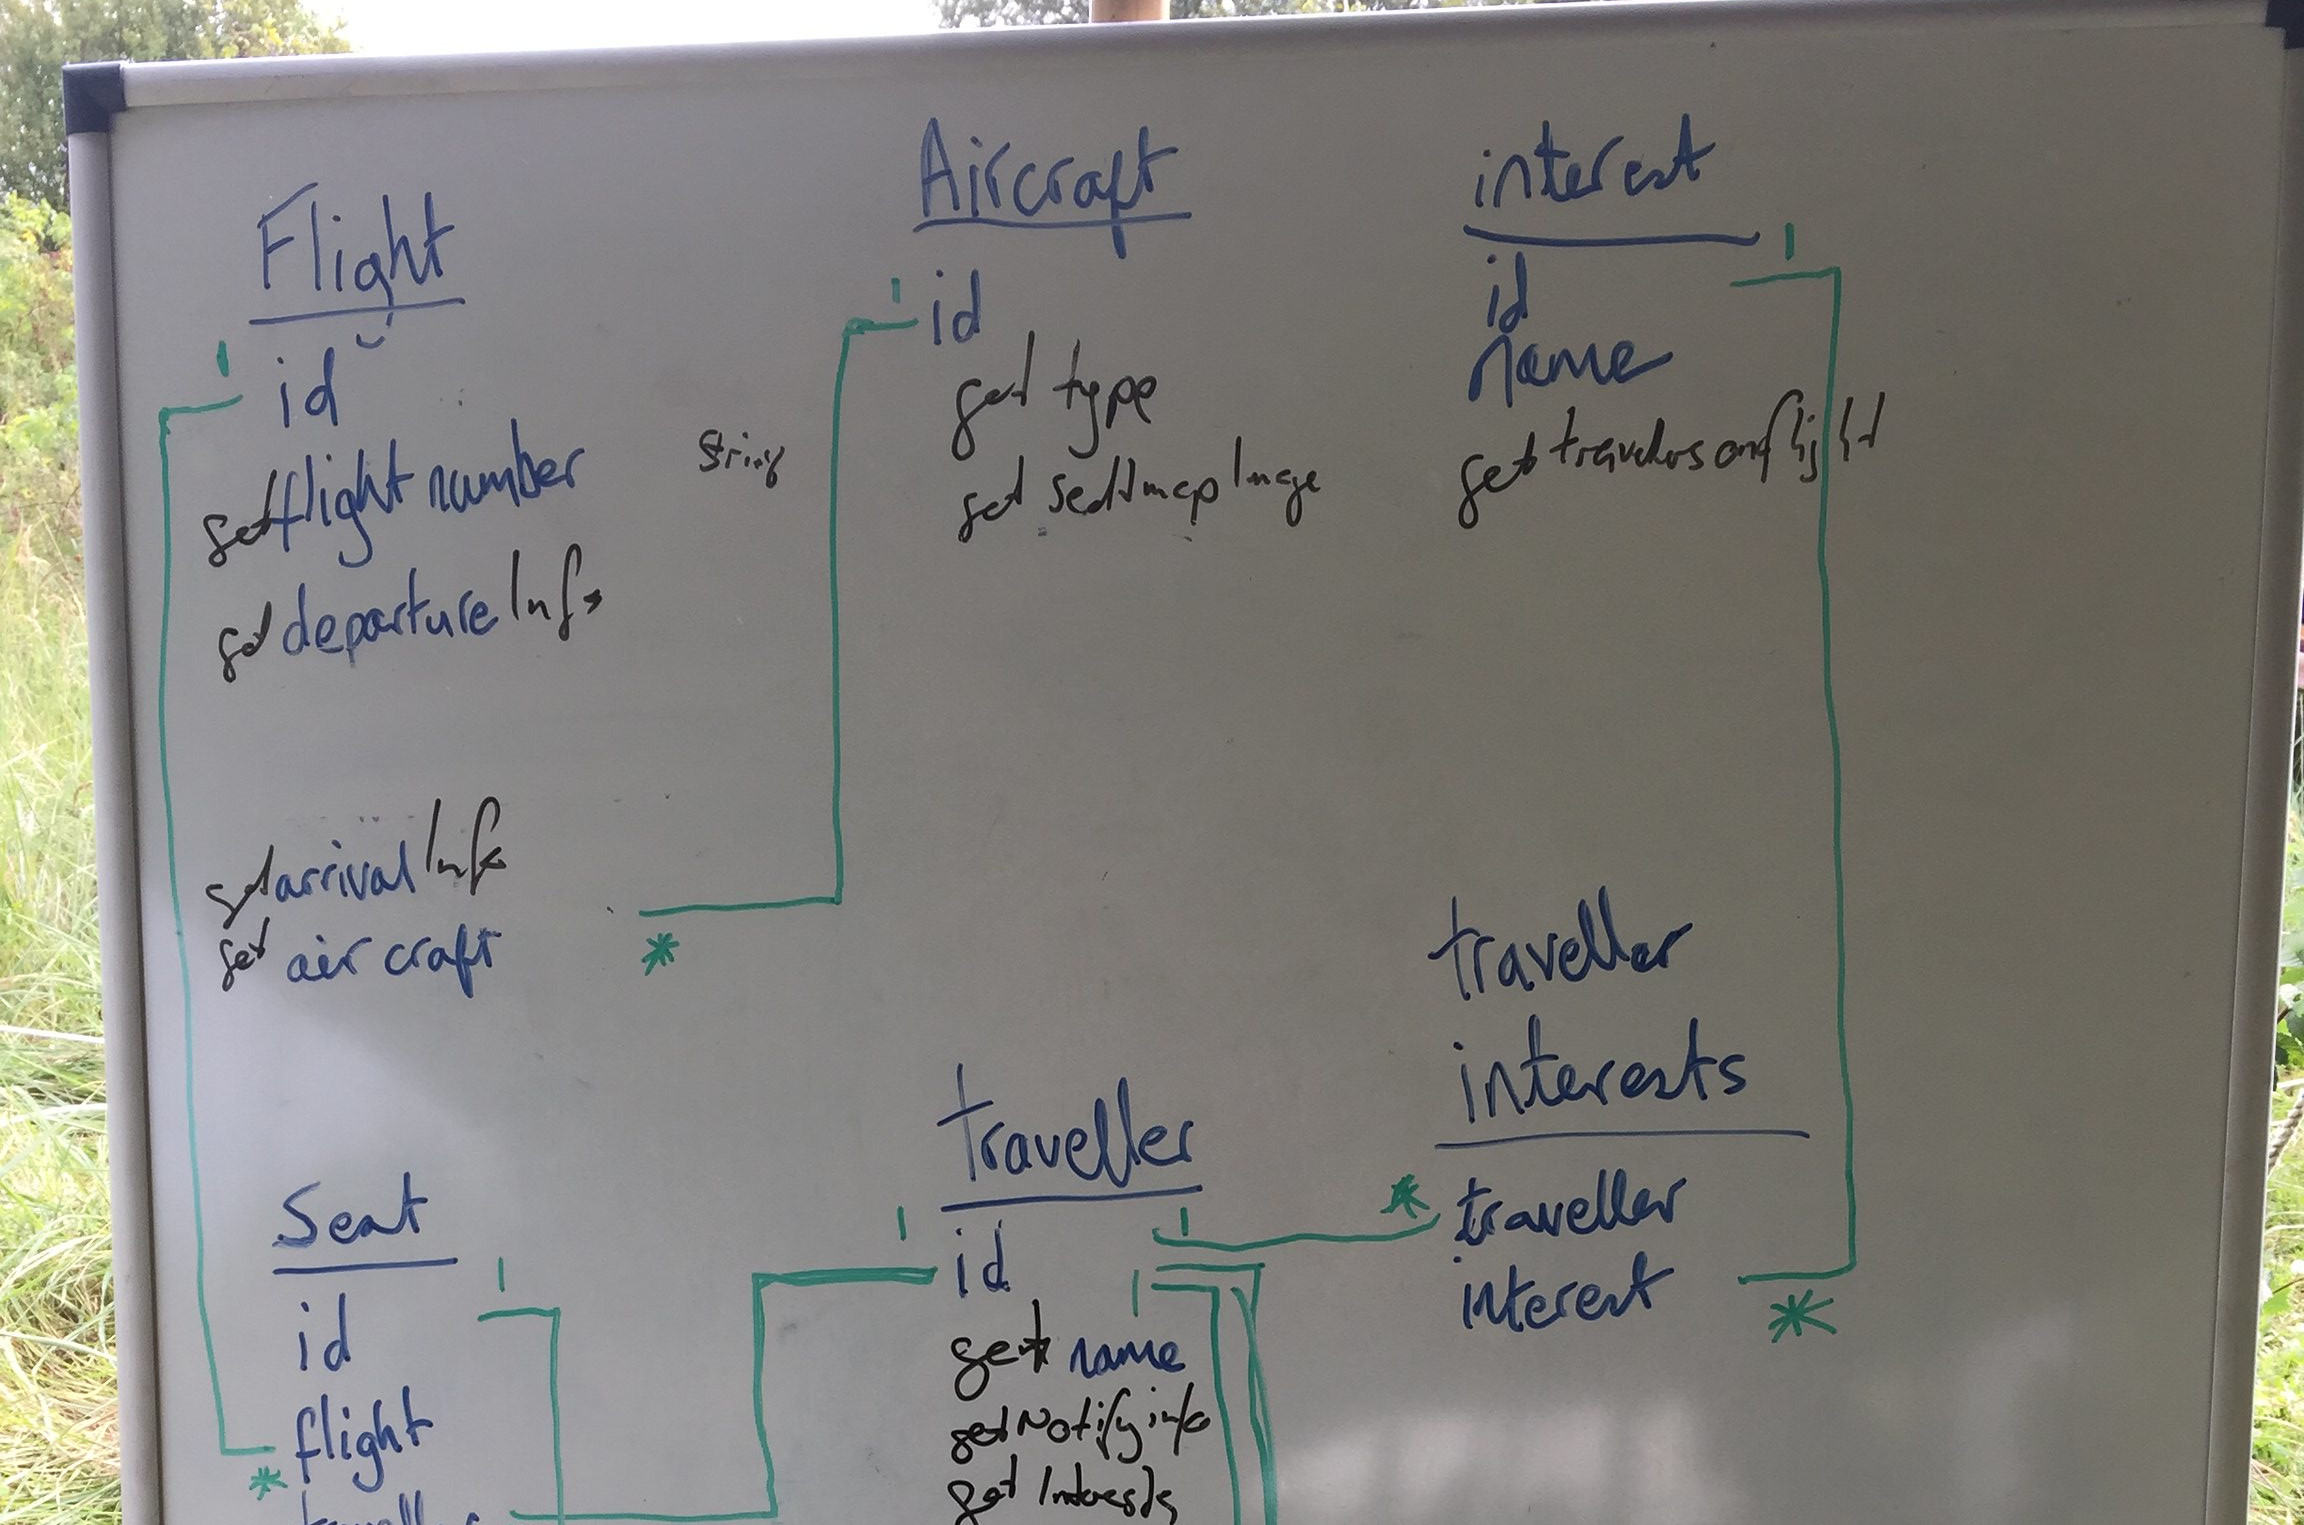 Flight
1
id
get flight number
String
get departure Info
get arrival Info
get aircraft
*
Aircraft
1
id
get type
get seatmap Image
interest
1
id
name
get travelers on flight
traveller
interests
*
traveller
interest
*
traveller
1
1
id
1
get name
get Notify info
get Interests
Seat
1
id
flight
*